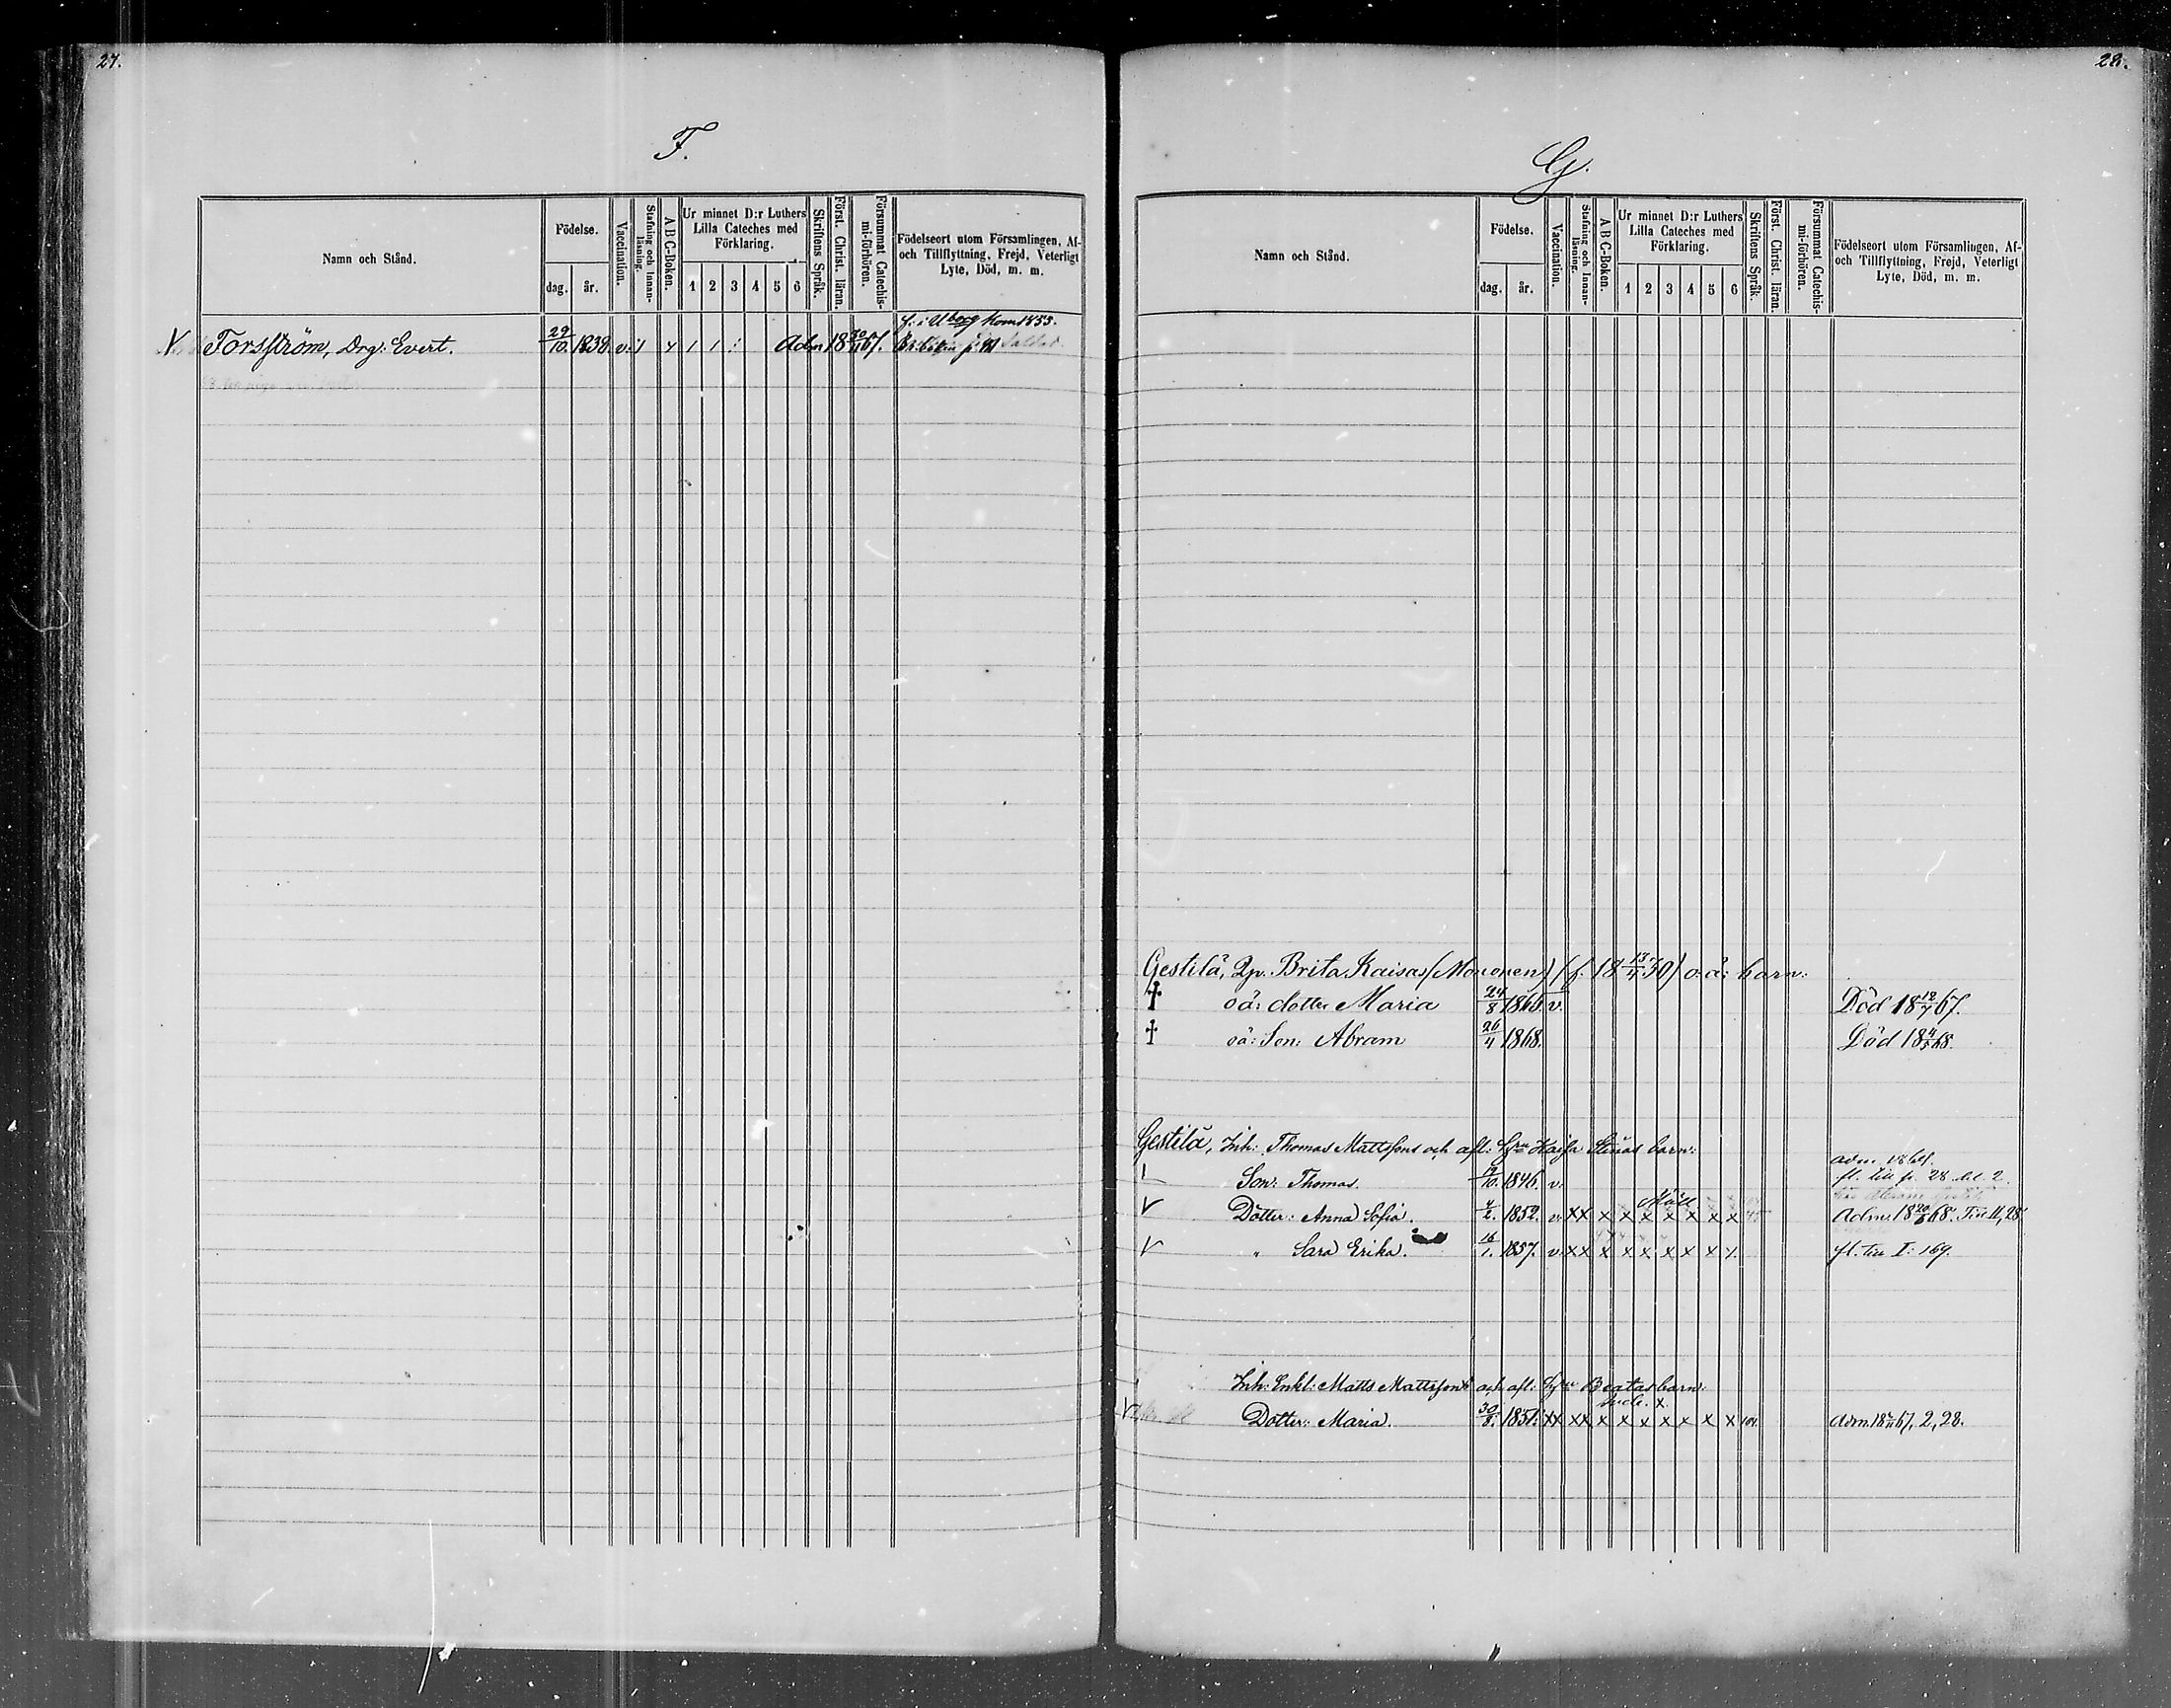 27.
F.
Namn och Stånd.
Födelse.
dag.
år.
Vaccination.
Stafning och Innan-läsning.
A B C-Boken.
Ur minnet D:r Luthers
Lilla Cateches med
Förklaring.
1 2 3 4 5 6
Skriftens Språk.
Först. Christ. läran.
Försummat Catechis-mi-förhören.
Födelseort utom Församlingen, Af-
och Tillflyttning, Frejd, Veterligt
Lyte, Död, m. m.
f. i Uborg kom 1853.
Forsström, Drg: Evert. 29/10. 1838. v. Adm 18 30/11 67.
28.
G.
Namn och Stånd.
Födelse.
dag.
år.
Vaccination.
Stafning och Innan-läsning.
A B C-Boken.
Ur minnet D:r Luthers
Lilla Cateches med
Förklaring.
1 2 3 4 5 6
Skriftens Språk.
Först. Christ. läran.
Försummat Catechis-mi-förhören.
Födelseort utom Församlingen, Af-
och Tillflyttning, Frejd, Veterligt
Lyte, Död, m. m.
Gestilä, Qp. Brita Kaisas (Mononen) (f. 18 13/4 30) o. ä: barn:
† oä: dotter Maria 24/8 1866. v. Död 18 12/7 67.
† oä: Son: Abram 26/4 1868. Död 18 4/5 68.
Gestilä, Inh: Thomas Mattssons och afl: Hru Kajsa Stinas barn:
Son: Thomas. 19/10. 1846. v. fl. till p. 28 del 2.
Dotter: Anna Sofia. 4/2. 1852. v. x x x x x x x x x Adm. 18 20/6 68. Till II, 28
" Sara Erika. 16/1. 1857. v. x x x x x x x x x fl. till I: 169.
Inh: Enkl: Matts Mattssons och afl: Hru Beatas barn:
Dotter: Maria. 30/8. 1851. xx xx x x x x x x x Adm. 67, 2, 28.